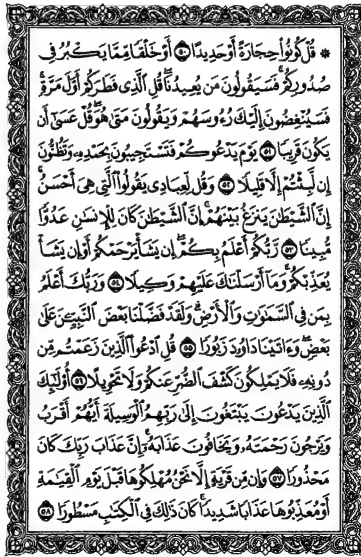 ۞ قُلْ كُونُوا۟ حِجَارَةً أَوْ حَدِيدًا ٥٠ أَوْ خَلْقًا مِّمَّا يَكْبُرُ فِى
صُدُورِكُمْ فَسَيَقُولُونَ مَن يُعِيدُنَا قُلِ ٱلَّذِى فَطَرَكُمْ أَوَّلَ مَرَّةٍ
فَسَيُنْغِضُونَ إِلَيْكَ رُءُوسَهُمْ وَيَقُولُونَ مَتَىٰ هُوَ قُلْ عَسَىٰٓ أَن
يَكُونَ قَرِيبًا ٥١ يَوْمَ يَدْعُوكُمْ فَتَسْتَجِيبُونَ بِحَمْدِهِۦ وَتَظُنُّونَ
إِن لَّبِثْتُمْ إِلَّا قَلِيلًا ٥٢ وَقُل لِّعِبَادِى يَقُولُوا۟ ٱلَّتِى هِىَ أَحْسَنُ
إِنَّ ٱلشَّيْطَٰنَ يَنزَغُ بَيْنَهُمْ إِنَّ ٱلشَّيْطَٰنَ كَانَ لِلْإِنسَٰنِ عَدُوًّا
مُّبِينًا ٥٣ رَّبُّكُمْ أَعْلَمُ بِكُمْ إِن يَشَأْ يَرْحَمْكُمْ أَوْ إِن يَشَأْ
يُعَذِّبْكُمْ وَمَآ أَرْسَلْنَٰكَ عَلَيْهِمْ وَكِيلًا ٥٤ وَرَبُّكَ أَعْلَمُ
بِمَن فِى ٱلسَّمَٰوَٰتِ وَٱلْأَرْضِ وَلَقَدْ فَضَّلْنَا بَعْضَ ٱلنَّبِيِّۦنَ عَلَىٰ
بَعْضٍ وَءَاتَيْنَا دَاوُۥدَ زَبُورًا ٥٥ قُلِ ٱدْعُوا۟ ٱلَّذِينَ زَعَمْتُم مِّن
دُونِهِۦ فَلَا يَمْلِكُونَ كَشْفَ ٱلضُّرِّ عَنكُمْ وَلَا تَحْوِيلًا ٥٦ أُو۟لَٰٓئِكَ
ٱلَّذِينَ يَدْعُونَ يَبْتَغُونَ إِلَىٰ رَبِّهِمُ ٱلْوَسِيلَةَ أَيُّهُمْ أَقْرَبُ
وَيَرْجُونَ رَحْمَتَهُۥ وَيَخَافُونَ عَذَابَهُۥٓ إِنَّ عَذَابَ رَبِّكَ كَانَ
مَحْذُورًا ٥٧ وَإِن مِّن قَرْيَةٍ إِلَّا نَحْنُ مُهْلِكُوهَا قَبْلَ يَوْمِ ٱلْقِيَٰمَةِ
أَوْ مُعَذِّبُوهَا عَذَابًا شَدِيدًا كَانَ ذَٰلِكَ فِى ٱلْكِتَٰبِ مَسْطُورًا ٥٨